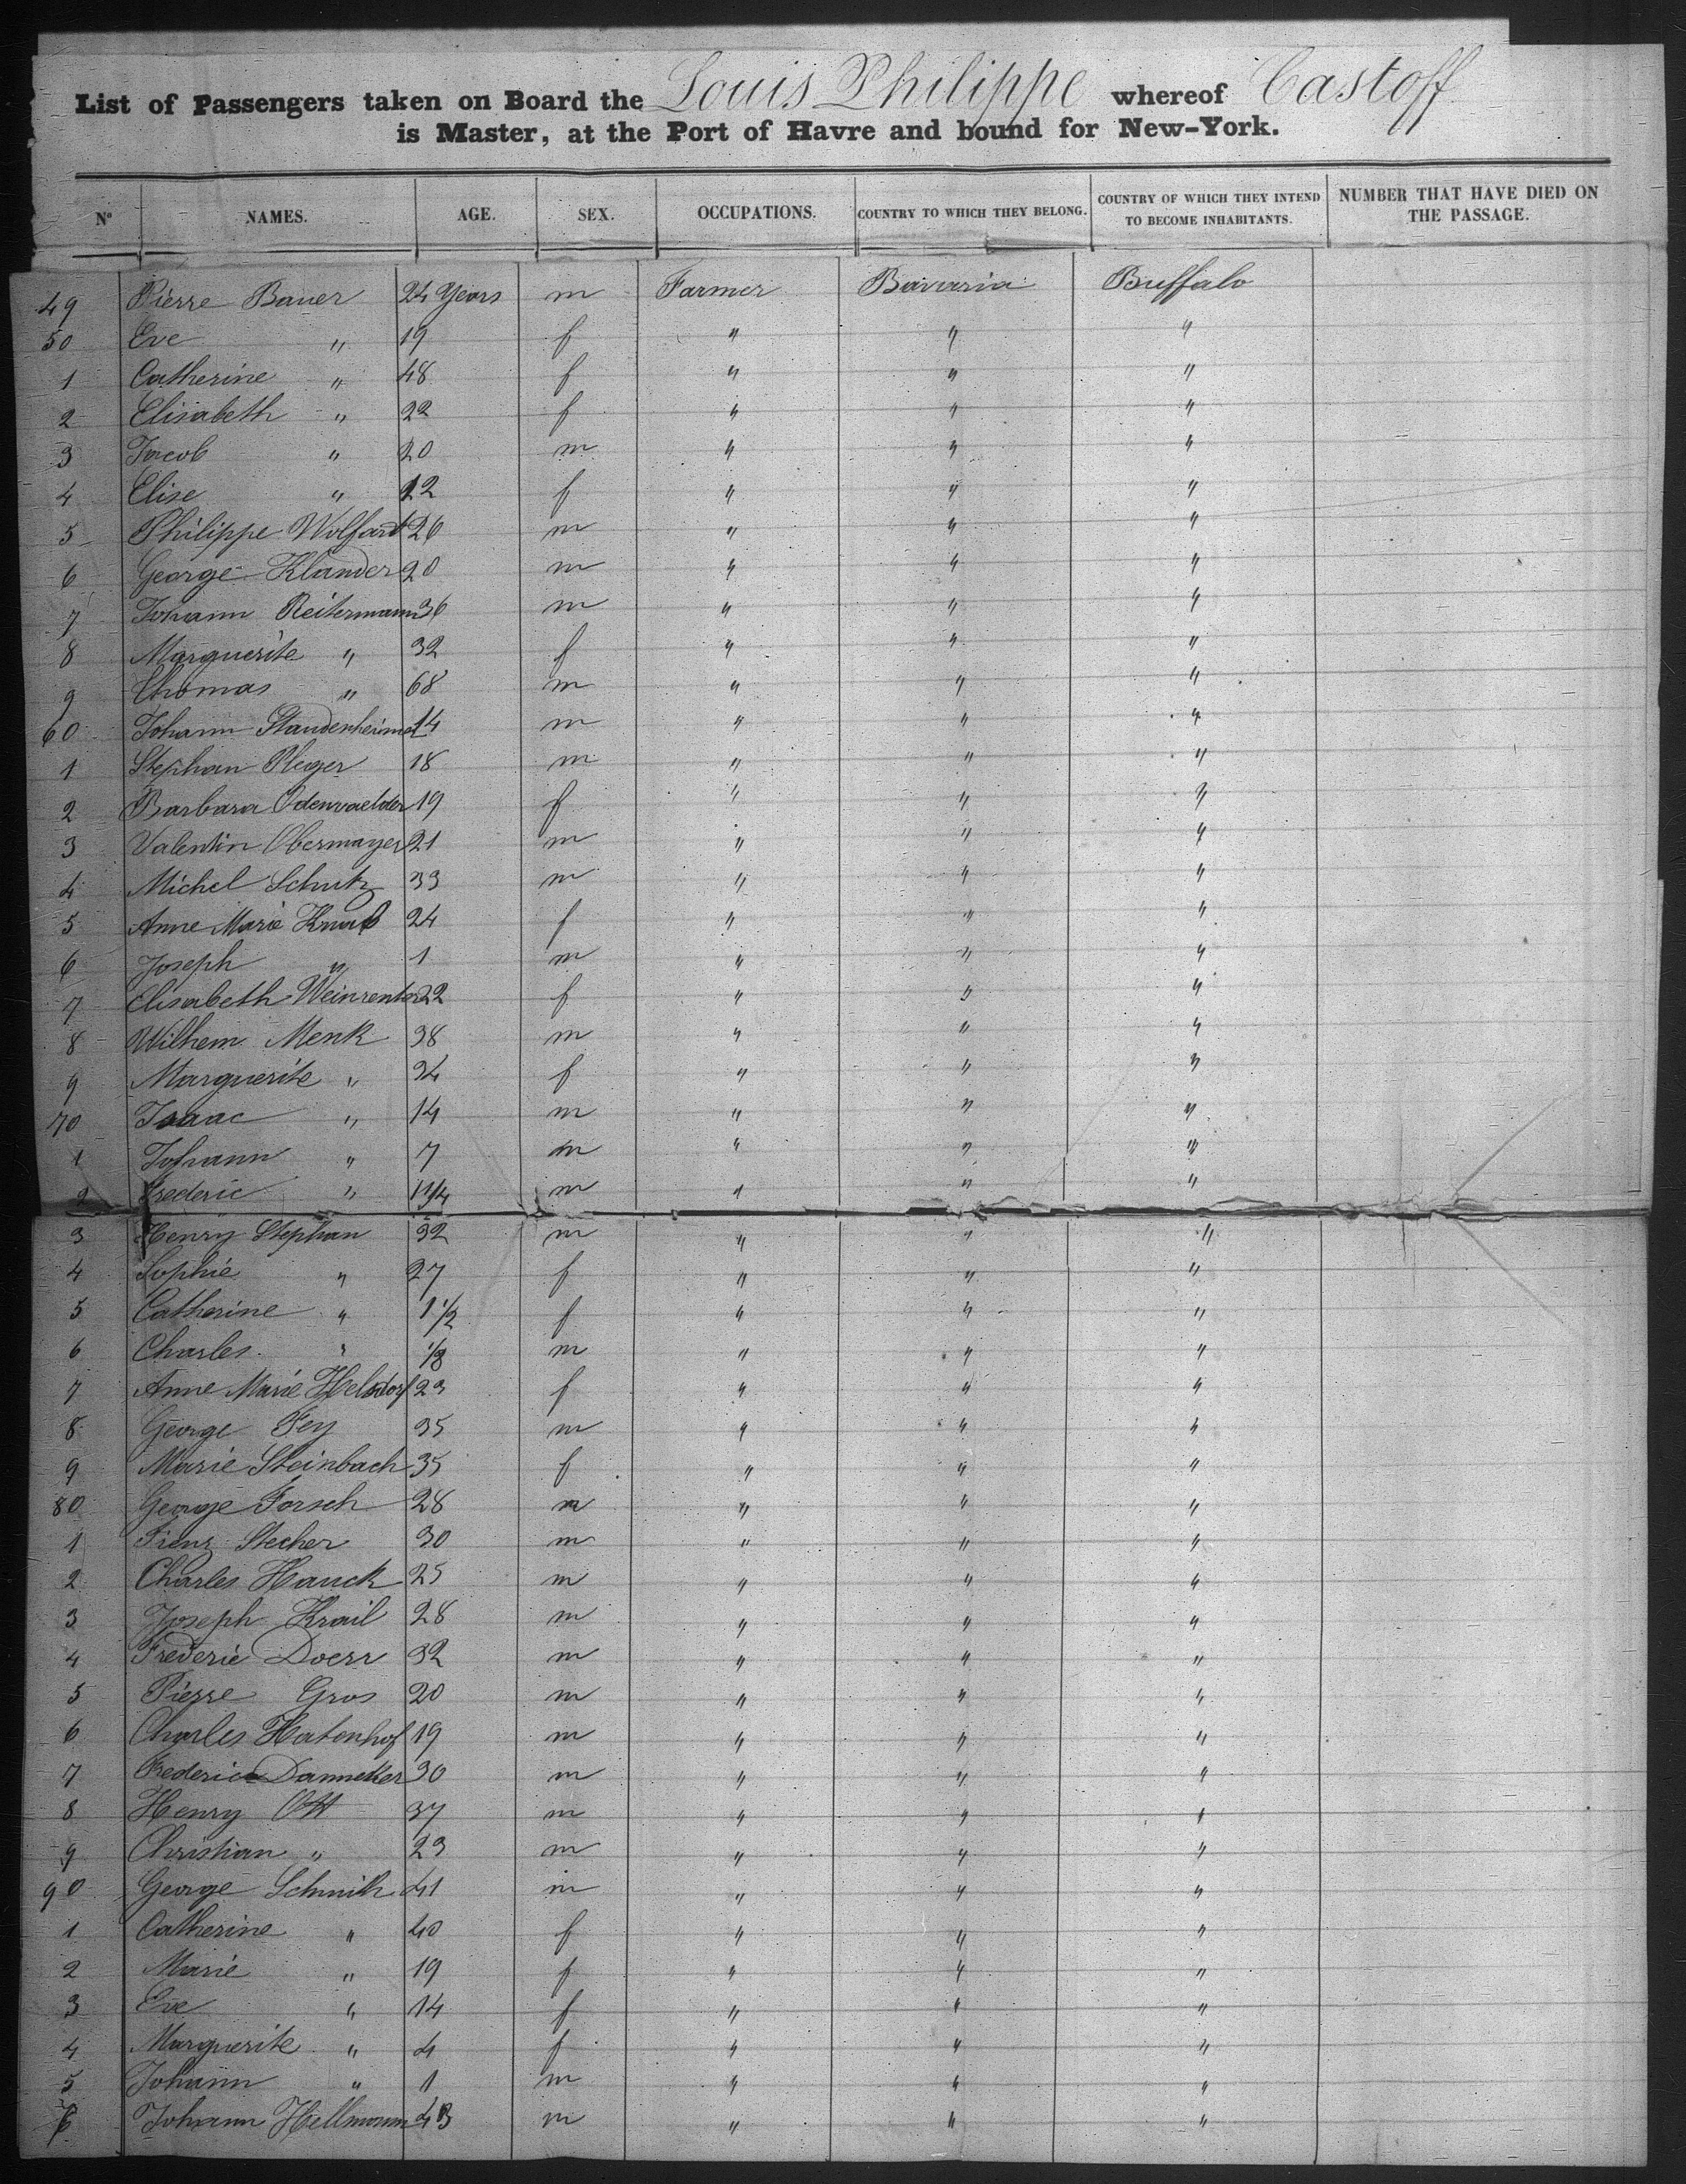 List of Passengers taken on Board the Louis Philippe whereof Castoff
is Master, at the Port of Havre and bound for New-York.
Nº NAMES. AGE. SEX. OCCUPATIONS. COUNTRY TO WHICH THEY BELONG. COUNTRY OF WHICH THEY INTEND TO BECOME INHABITANTS. NUMBER THAT HAVE DIED ON THE PASSAGE.
49 Pierre Bauer 24 Years m Farmer Bavaria Buffalo
50 Eve " 19 f " " "
1 Catherine " 48 f " " "
2 Elisabeth " 22 f " " "
3 Jacob " 20 m " " "
4 Elise " 12 f " " "
5 Philippe Wolfart 26 m " " "
6 George Klander 20 m " " "
7 Johann Reitermann 36 m " " "
8 Marguerite " 32 f " " "
9 Thomas " 68 m " " "
60 Johann Staudenheimer 14 m " " "
1 Stephan Pleger 18 m " " "
2 Barbara Odenwaelder 19 f " " "
3 Valentin Obermayer 21 m " " "
4 Michel Schutz 33 m " " "
5 Anne Marie Knab 24 f " " "
6 Joseph " 1 m " " "
7 Elisabeth Weinrenter 22 f " " "
8 Wilhem Menk 38 m " " "
9 Marguerite " 34 f " " "
70 Isaac " 14 m " " "
1 Johann " 7 m " " "
2 Frederic " 1 1/4 m " " "
3 Henry Stephan 32 m " " "
4 Sophie " 27 f " " "
5 Catherine " 1 1/2 f " " "
6 Charles " 1/8 m " " "
7 Anne Marie 23 f " " "
8 George Fey 35 m " " "
9 Marie Steinbach 35 f " " "
80 George Forsch 28 m " " "
1 Stecher 30 m " " "
2 Charles Hauck 25 m " " "
3 Joseph Krail 28 m " " "
4 Frederic Doerr 32 m " " "
5 Pierre Gros 20 m " " "
6 Charles Hatenhof 19 m " " "
7 Frederic Danneker 30 m " " "
8 Henry Ott 37 m " " "
9 Christian " 23 m " " "
90 George Schmith 41 m " " "
1 Catherine " 40 f " " "
2 Marie " 19 f " " "
3 Eve " 14 f " " "
4 Marguerite " 4 f " " "
5 Johann " 1 m " " "
6 Johann Hellmann 43 m " " "